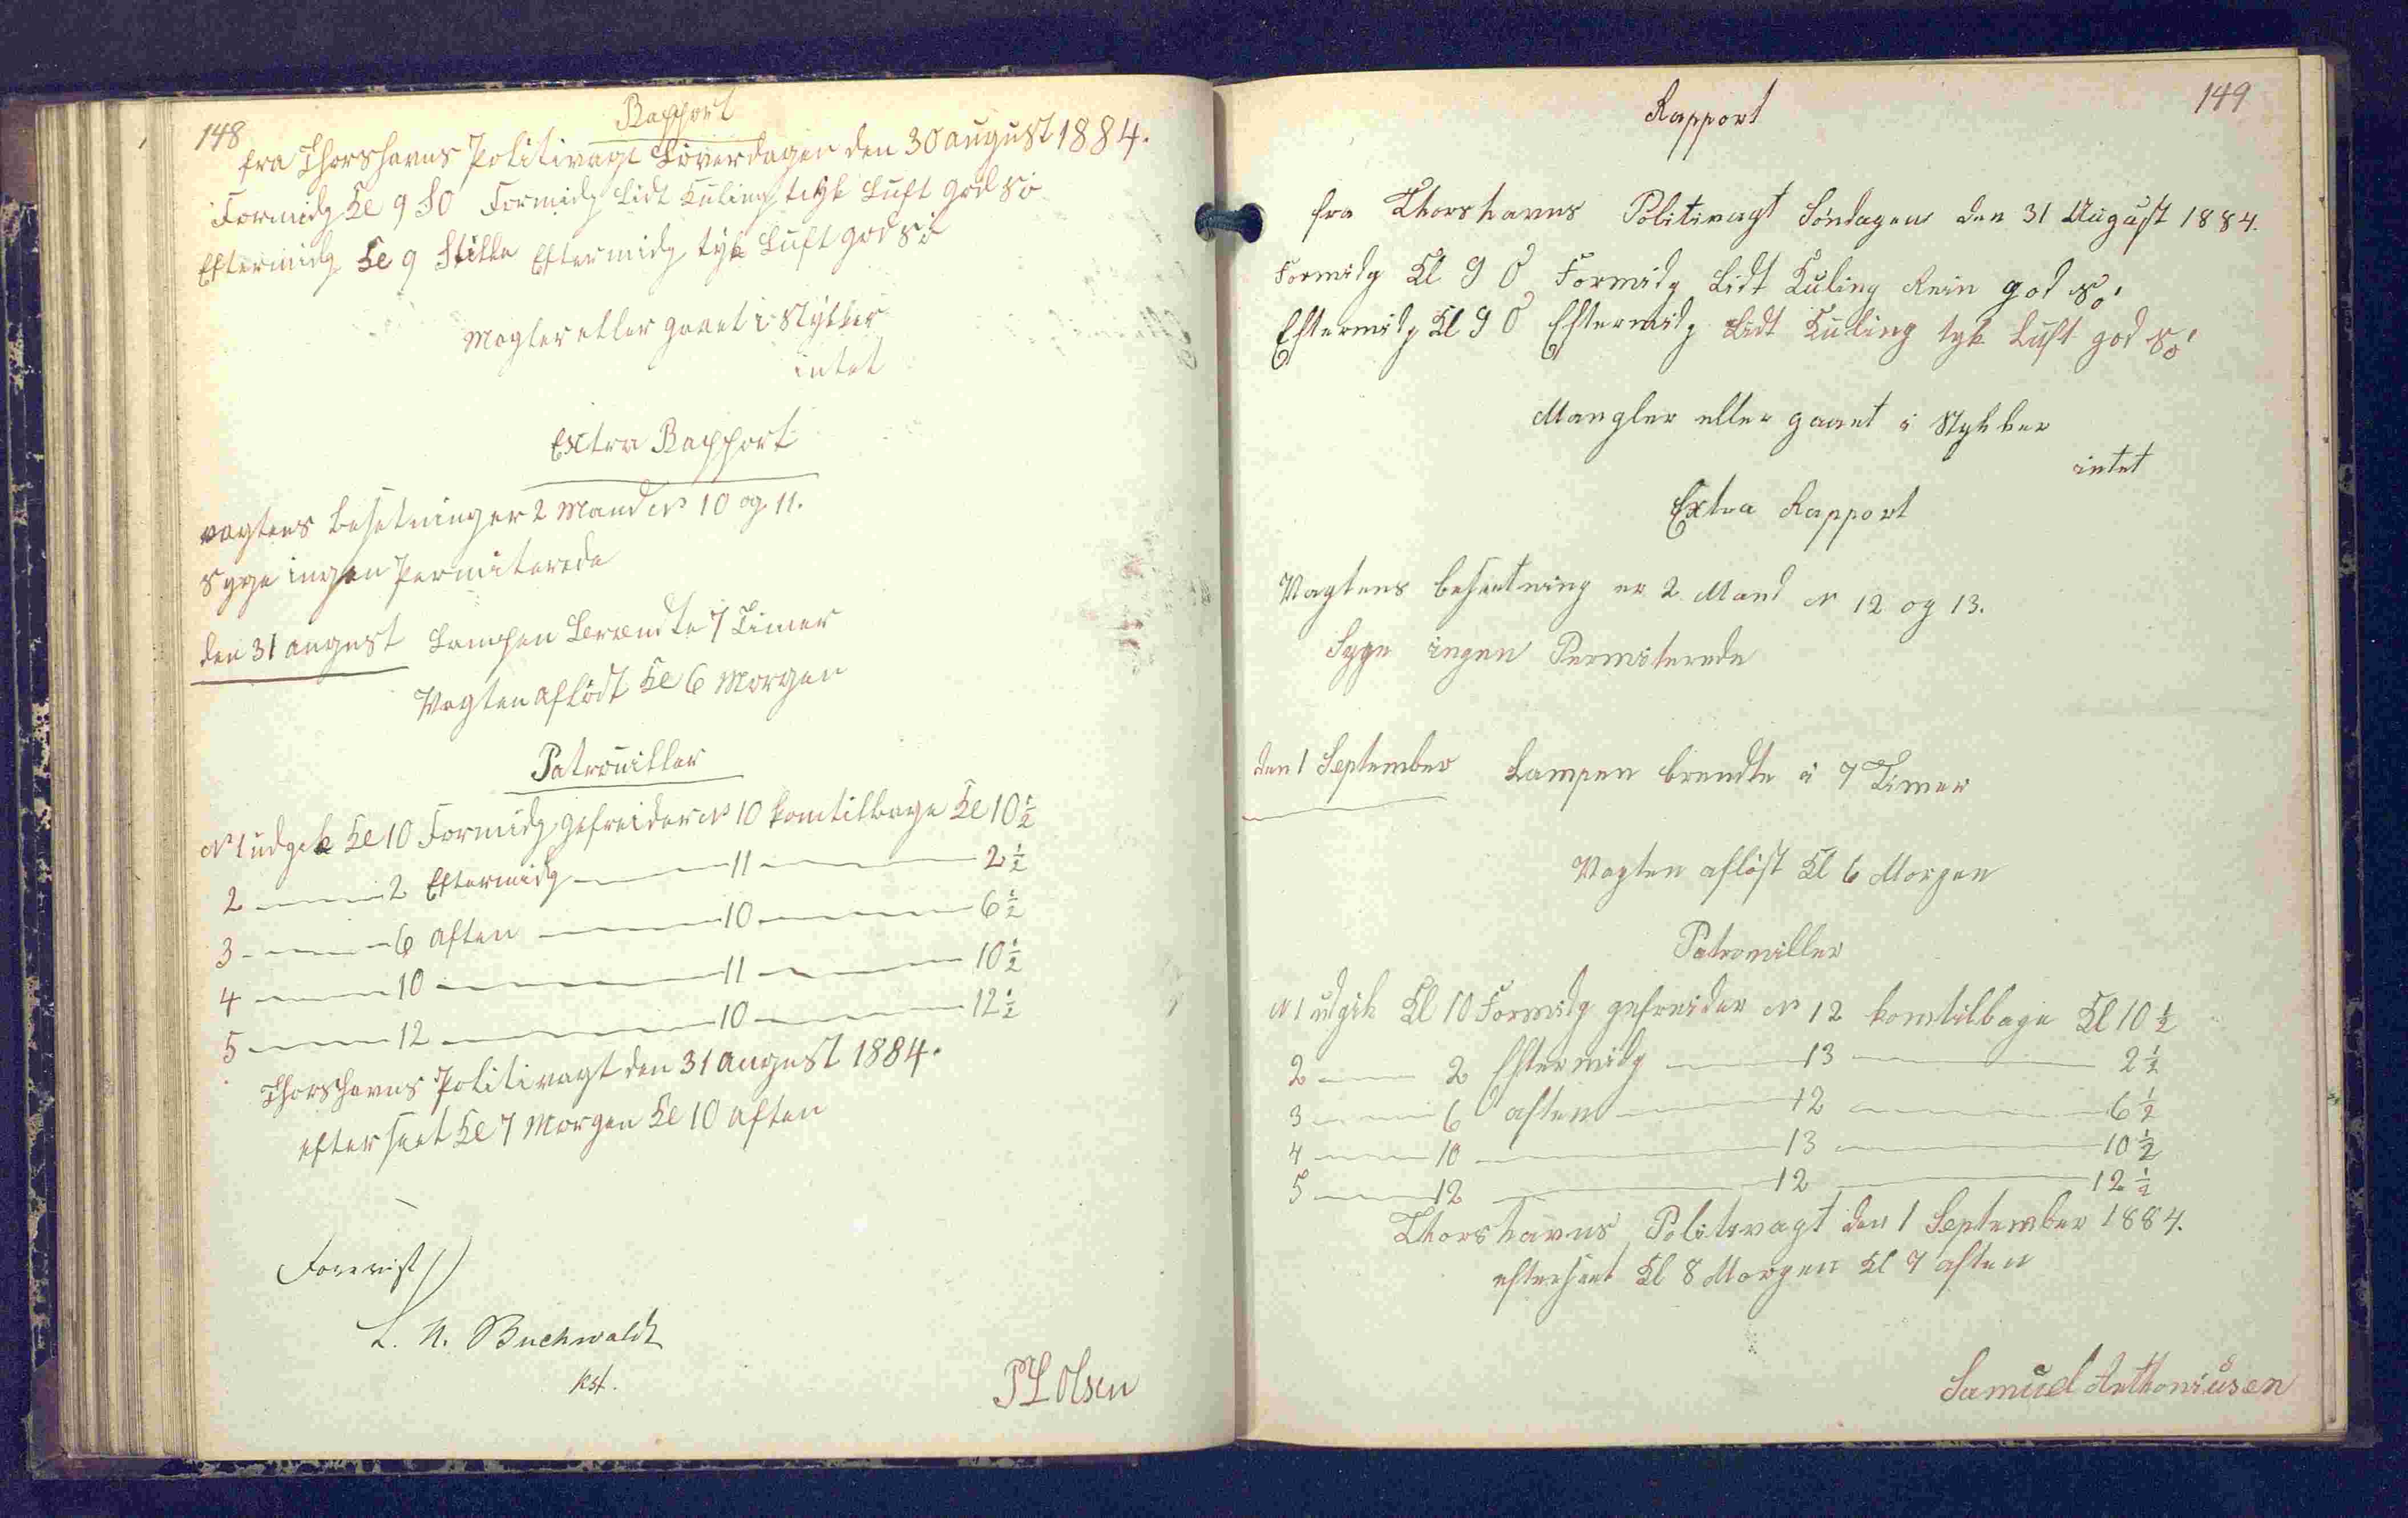 148
Rapport
fra Thorshavns Politivagt Löverdagen den 30 august 1884.
Formidg Kl 9 SO Formidg Lidt Kuling tyk Luft god Sö
Eftermidg Kl 9 Stille Eftermidg tyk Luft god Sö
Magler eller gaaet i Stykker
intet
Extra Rapport
vagtens besetning er 2 Mand No 10 og 11.
Syge ingen Permiterede
den 31 august Lampen Brændte 7 Timer
Vagten aflödt Kl 6 Morgen
Patrouiller
No 1 udgik Kl 10 Formidg gefreider No 10 kom tilbage Kl 10 1/2
2 — 2 Eftermidg — 11 — 2 1/2
3 — 6 aften — 10 — 6 1/2
4 — 10 — 11 — 10 1/2
5 — 12 — 10 — 12 1/2
Thorshavns Politivagt den 31 august 1884.
efterseet Kl 7 Morgen Kl 10 aften
Forevist
L. N. Buchwaldt
kst.
P L Olsen
149
Rapport
fra Thorshavns Politivagt Söndagen den 31 August 1884.
Formidg Kl 9 O Formidg Lidt Kuling Rein god Sö
Eftermidg Kl 9 O Eftermidg Lidt Kuling tyk Luft god Sö
Mangler eller gaaet i Stykker
intet
Extra Rapport
Vagtens besætning er 2 Mand N 12 og 13.
Syge ingen Permiterede
den 1 September Lampen brendte i 7 Timer
Vagten aflöst Kl 6 Morgen
Patrouiller
N 1 udgik Kl 10 Formidg gefreider N 12 kom tilbage Kl 10 1/2
2 — 2 Eftermidg — 13 — 2 1/2
3 — 6 aften — 12 — 6 1/2
4 — 10 — 13 — 10 1/2
5 — 12 — 12 — 12 1/2
Thorshavns Politivagt den 1 September 1884.
efterseet Kl 8 Morgen Kl 7 aften
Samuel Anthoniusen